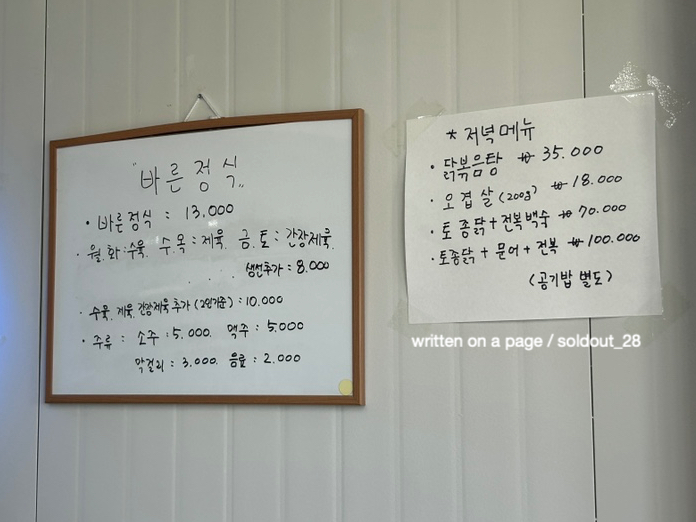 "바른정식"
· 바른정식 : 13,000
· 월.화:수육. 수.목:제육. 금.토:간장제육.
생선추가 : 8.000
· 수육.제육.간장제육 추가 (2인기준) : 10,000
· 주류 : 소주 : 5,000. 맥주 : 5,000
막걸리 : 3,000. 음료 : 2,000
* 저녁메뉴
· 닭볶음탕 ₩ 35.000
· 오겹살 (200g) ₩ 18.000
· 토종닭+전복백숙 ₩ 70.000
· 토종닭 + 문어 + 전복 ₩ 100.000
(공기밥 별도)
written on a page / soldout_28